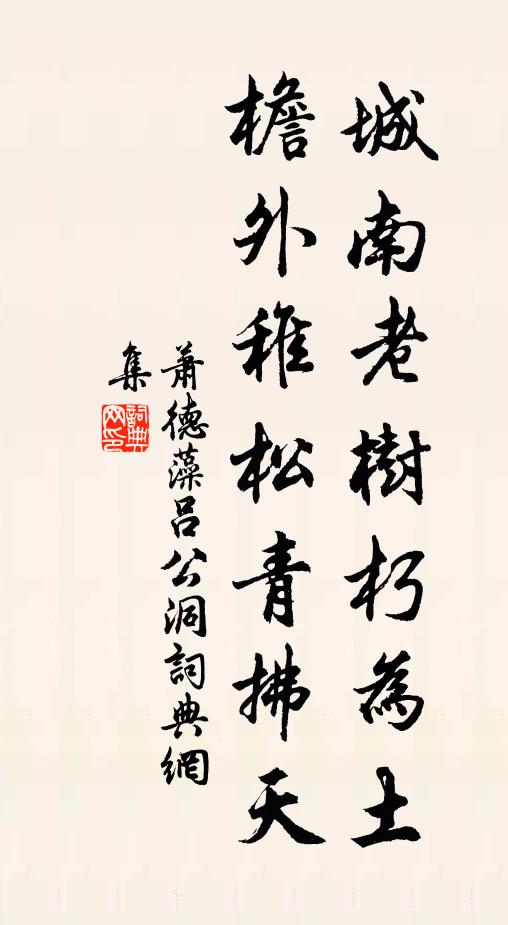 城南老樹朽為土
檐外稚松青拂天
蕭德藻吕公洞詞典網
集
詞典
网印